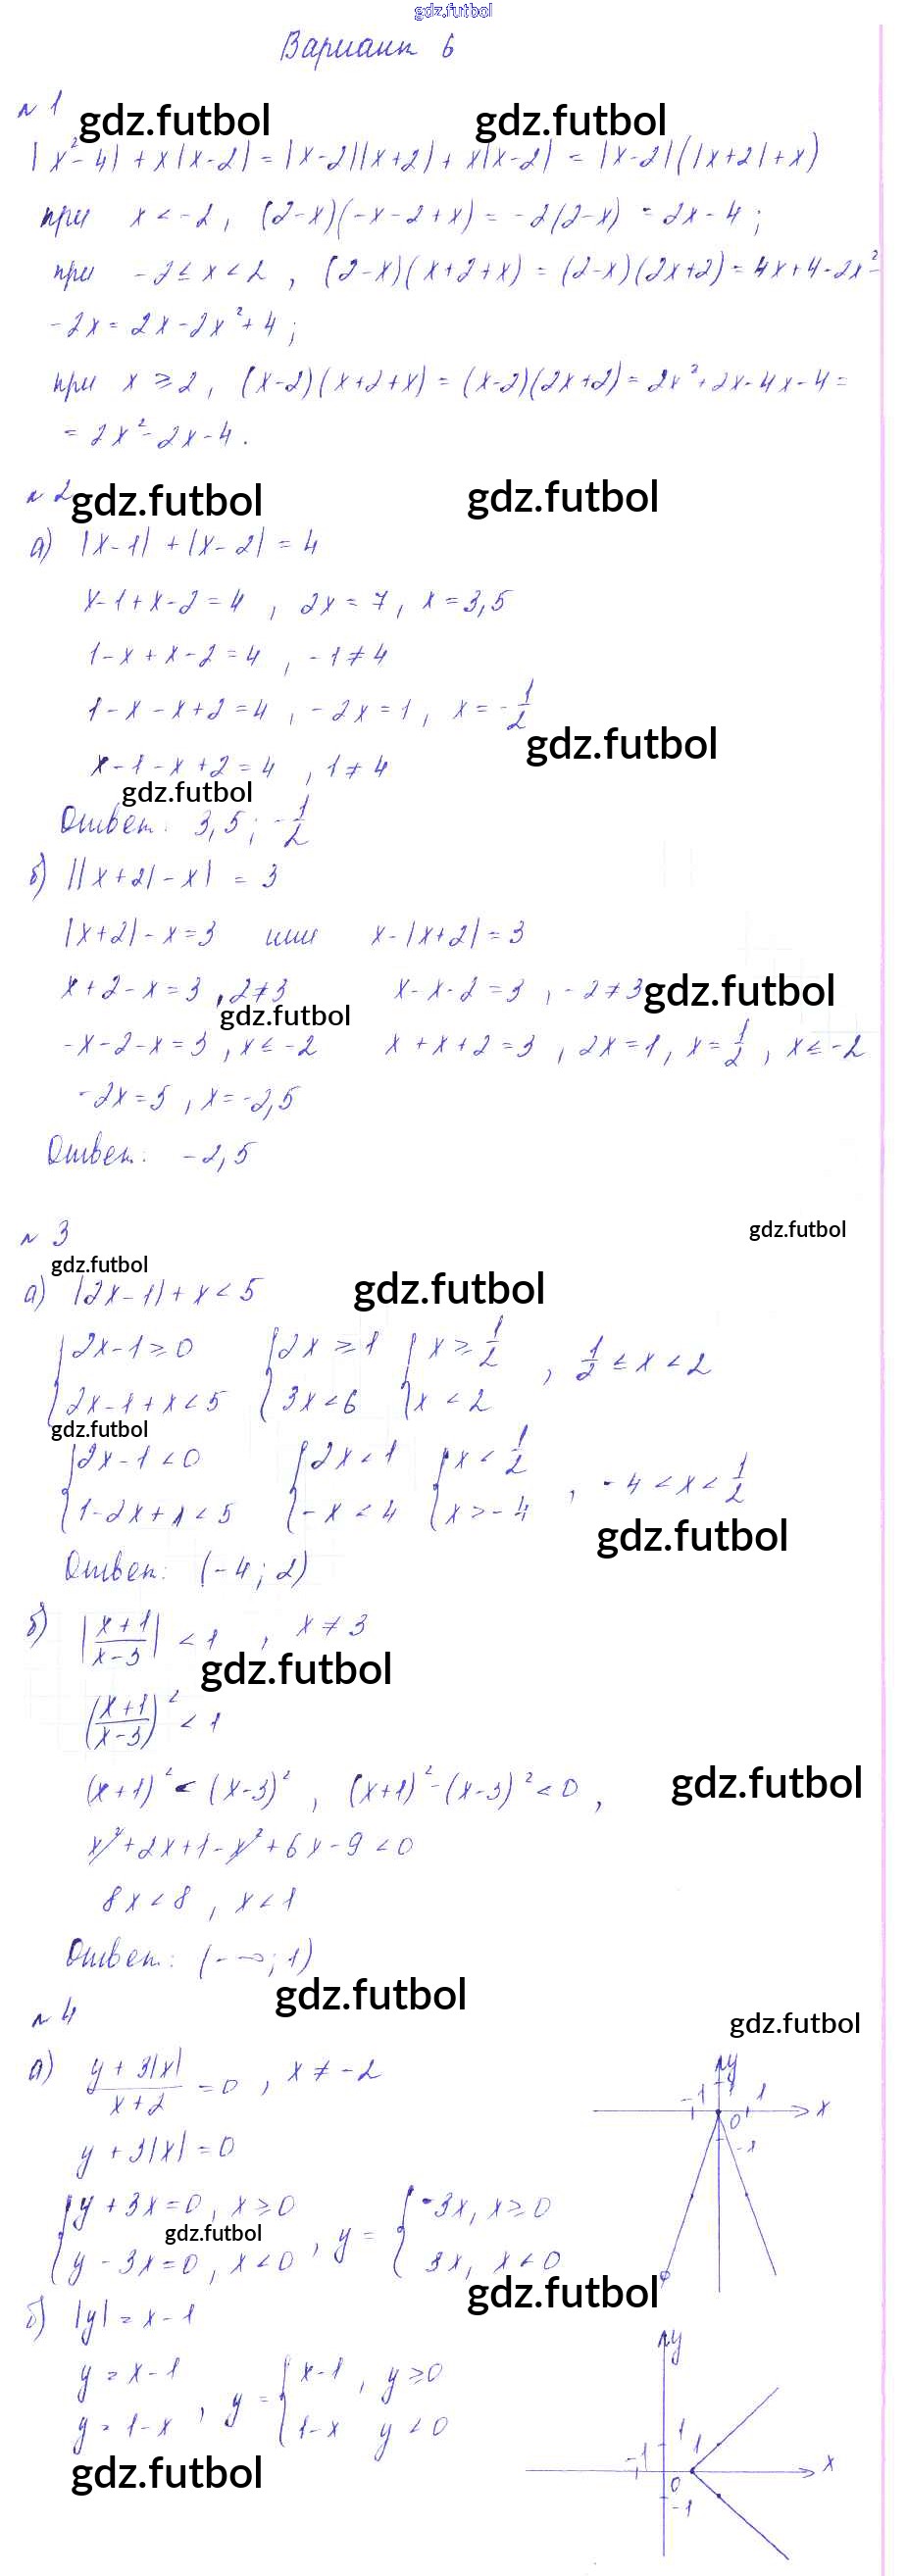 gdz.futbol
Вариант 6
№ 1
gdz.futbol gdz.futbol
|x²-4| + x|x-2| = |x-2||x+2| + x|x-2| = |x-2|(|x+2|+x)
при x < -2, (2-x)(-x-2+x) = -2(2-x) = 2x-4;
при -2 ≤ x < 2, (2-x)(x+2+x) = (2-x)(2x+2) = 4x+4-2x²-
-2x = 2x-2x²+4;
при x ≥ 2, (x-2)(x+2+x) = (x-2)(2x+2) = 2x²+2x-4x-4 =
= 2x²-2x-4.
№ 2 gdz.futbol gdz.futbol
а) |x-1| + |x-2| = 4
x-1+x-2=4, 2x=7, x=3,5
1-x+x-2=4, -1≠4
1-x-x+2=4, -2x=1, x=-1/2
gdz.futbol
x-1-x+2=4, 1≠4
gdz.futbol
Ответ: 3,5; -1/2
б) ||x+2|-x| = 3
|x+2|-x=3 или x-|x+2|=3
x+2-x=3, 2≠3 x-x-2=3, -2≠3 gdz.futbol
gdz.futbol
-x-2-x=3, x≤-2 x+x+2=3, 2x=1, x=1/2, x≤-2
-2x=5, x=-2,5
Ответ: -2,5
№ 3 gdz.futbol
gdz.futbol
а) |2x-1|+x<5 gdz.futbol
{2x-1≥0 {2x≥1 {x≥1/2 , 1/2≤x<2
{2x-1+x<5 {3x<6 {x<2
gdz.futbol
{2x-1<0 {2x<1 {x<1/2 , -4<x<1/2
{1-2x+x<5 {-x<4 {x>-4
gdz.futbol
Ответ: (-4; 2)
б) |(x+1)/(x-3)| < 1, x≠3
gdz.futbol
((x+1)/(x-3))² < 1
(x+1)² < (x-3)², (x+1)²-(x-3)²<0, gdz.futbol
x²+2x+1-x²+6x-9<0
8x<8, x<1
Ответ: (-∞; 1)
gdz.futbol
№ 4 gdz.futbol
а) (y+3|x|)/(x+2) = 0, x≠-2
y
-1 1 1 x
0
-1
y+3|x|=0
{y+3x=0, x≥0 , y= {-3x, x≥0
gdz.futbol
{y-3x=0, x<0 {3x, x<0
gdz.futbol
б) |y|=x-1
y=x-1 , y= {x-1, y≥0
y=1-x {1-x y<0
gdz.futbol
y
1
-1 1 x
0
-1